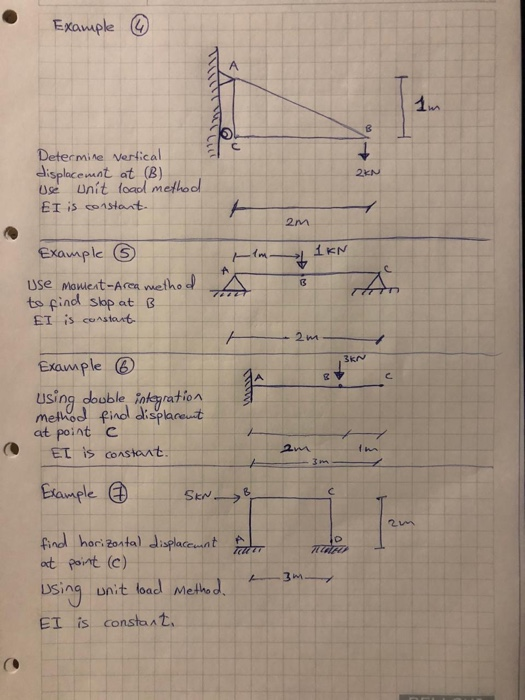 Example 4
A
1m
B
C
2KN
Determine vertical
displacemnt at (B)
Use Unit load method
EI is constant.
2m
Example 5
1m
1KN
A
B
C
Use Moment-Area method
to find slop at B
EI is constant
2m
Example 6
3KN
A
B
C
Using double integration
method find displacemt
at point C
EI is constant.
2m
1m
3m
Example 7
5KN
B
C
2m
A
D
find horizontal displacemnt
at point (C)
3m
Using unit load Method.
EI is constant.